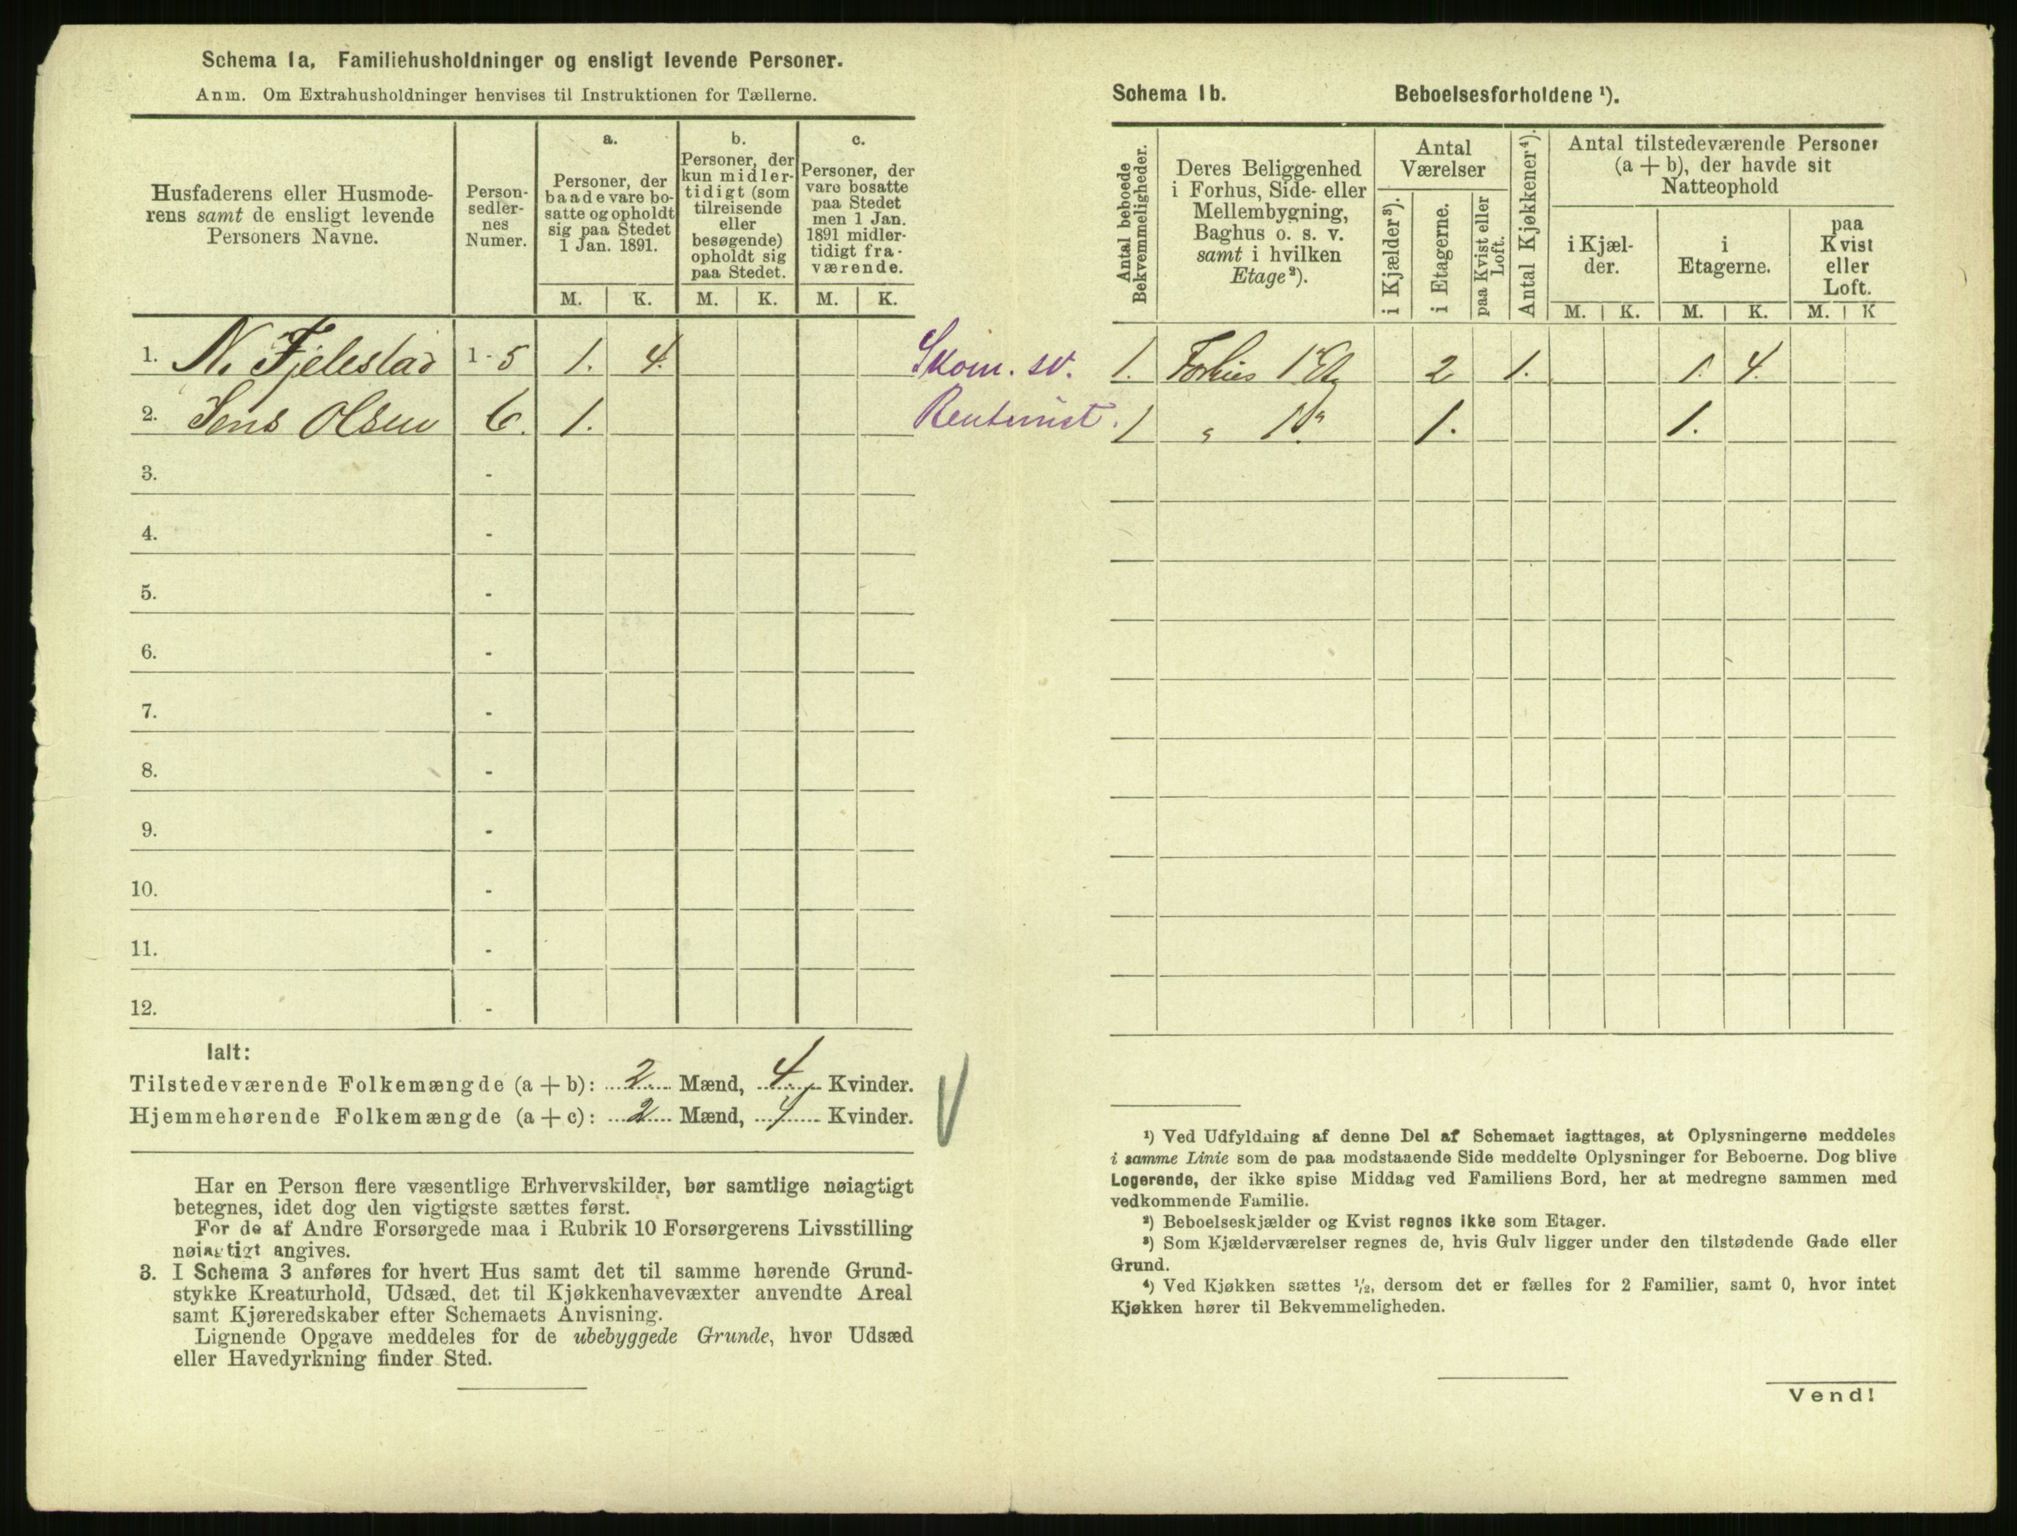 Schema 1a, Familiehusholdninger og ensligt levende Personer.
Anm. Om Extrahusholdninger henvises til Instruktionen for Tællerne.
Husfaderens eller Husmode-
rens samt de ensligt levende
Personers Navne.
Person-
sedler-
nes
Numer.
a.
Personer, der
baade vare bo-
satte og opholdt
sig paa Stedet
1 Jan. 1891.
b.
Personer, der
kun midler-
tidigt (som
tilreisende
eller
besøgende)
opholdt sig
paa Stedet.
c.
Personer, der
vare bosatte
paa Stedet
men 1 Jan.
1891 midler-
tidigt fra-
værende.
M. K. M. K. M. K.
1. N. Fjelestad 1-5 1. 4. Skom. sv.
2. Jens Olsen 6. 1. Rentenist.
3. -
4. -
5. -
6. -
7. -
8. -
9. -
10. -
11. -
12. -
Ialt:
Tilstedeværende Folkemængde (a + b): 2 Mænd, 4 Kvinder.
Hjemmehørende Folkemængde (a + c): 2 Mænd, 4 Kvinder.
Har en Person flere væsentlige Erhvervskilder, bør samtlige nøiagtigt
betegnes, idet dog den vigtigste sættes først.
For de af Andre Forsørgede maa i Rubrik 10 Forsørgerens Livsstilling
nøiagtigt angives.
3. I Schema 3 anføres for hvert Hus samt det til samme hørende Grund-
stykke Kreaturhold, Udsæd, det til Kjøkkenhavevæxter anvendte Areal
samt Kjøreredskaber efter Schemaets Anvisning.
Lignende Opgave meddeles for de ubebyggede Grunde, hvor Udsæd
eller Havedyrkning finder Sted.
Schema 1b. Beboelsesforholdene ¹).
Antal beboede
Bekvemmeligheder.
Deres Beliggenhed
i Forhus, Side- eller
Mellembygning,
Baghus o. s. v.
samt i hvilken
Etage²).
Antal
Værelser
i Kjælder³).
i Etagerne.
paa Kvist eller
Loft.
Antal Kjøkkener⁴).
Antal tilstedeværende Personer
(a + b), der havde sit
Natteophold
i Kjæl-
der.
i
Etagerne.
paa
Kvist
eller
Loft.
M. K. M. K. M. K
1. Forhus 1 Etg 2 1. 1. 4.
1 " 1 " 1. 1.
¹) Ved Udfyldning af denne Del af Schemaet iagttages, at Oplysningerne meddeles
i samme Linie som de paa modstaaende Side meddelte Oplysninger for Beboerne. Dog blive
Logerende, der ikke spise Middag ved Familiens Bord, her at medregne sammen med
vedkommende Familie.
²) Beboelseskjælder og Kvist regnes ikke som Etager.
³) Som Kjælderværelser regnes de, hvis Gulv ligger under den tilstødende Gade eller
Grund.
⁴) Ved Kjøkken sættes ¹/₂, dersom det er fælles for 2 Familier, samt 0, hvor intet
Kjøkken hører til Bekvemmeligheden.
Vend!